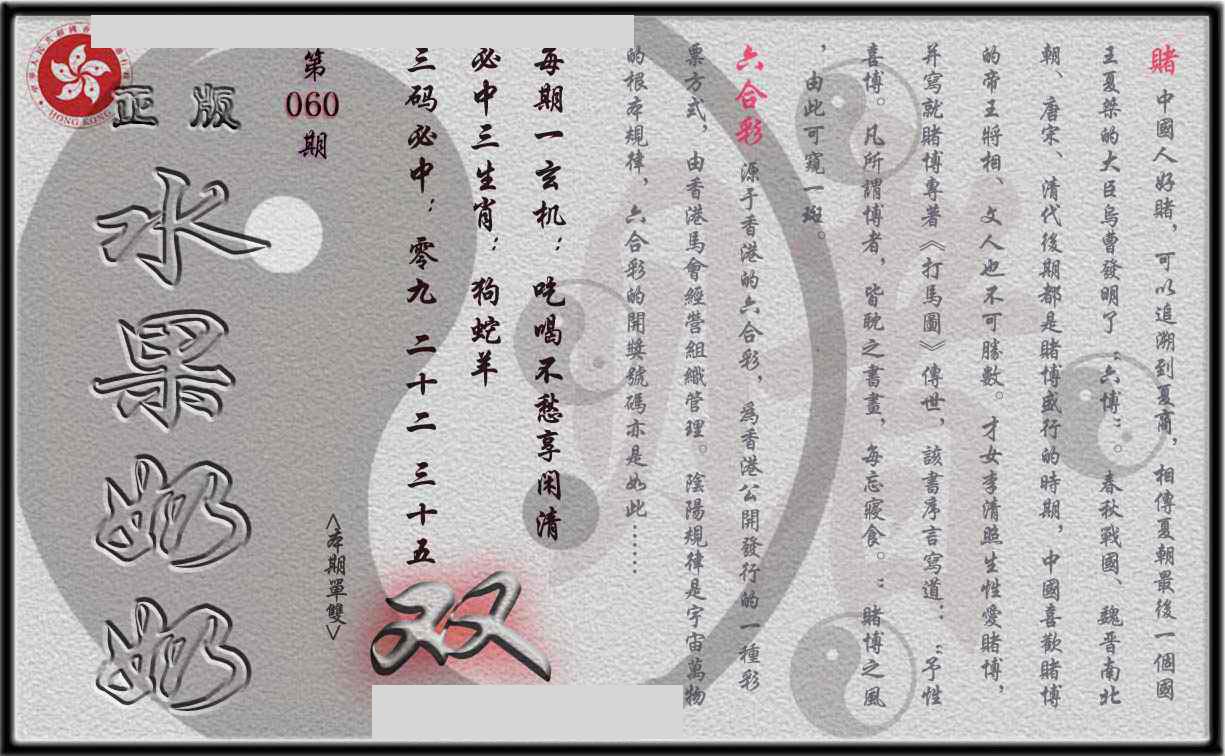 賭 中國人好賭，可以追溯到夏商，相傳夏朝最後一個國
王夏桀的大臣烏曹發明了“六博”。春秋戰國、魏晋南北
朝、唐宋、清代後期都是賭博盛行的時期，中國喜歡賭博
的帝王將相、文人也不可勝數。才女李清照生性愛賭博，
并寫就賭博專著《打馬圖》傳世，該書序言寫道：“予性
喜博。凡所謂博者，皆耽之書畫，每忘寢食。”賭博之風
，由此可窺一斑。
六合彩 源于香港的六合彩，爲香港公開發行的一種彩
票方式，由香港馬會經營組織管理。陰陽規律是宇宙萬物
的根本規律，六合彩的開獎號碼亦是如此……
每期一玄机：吃喝不愁享闲清
必中三生肖：狗蛇羊
三码必中：零九 二十二 三十五
<本期單雙>
双
第
060
期
正版
水果奶奶
HONG KONG